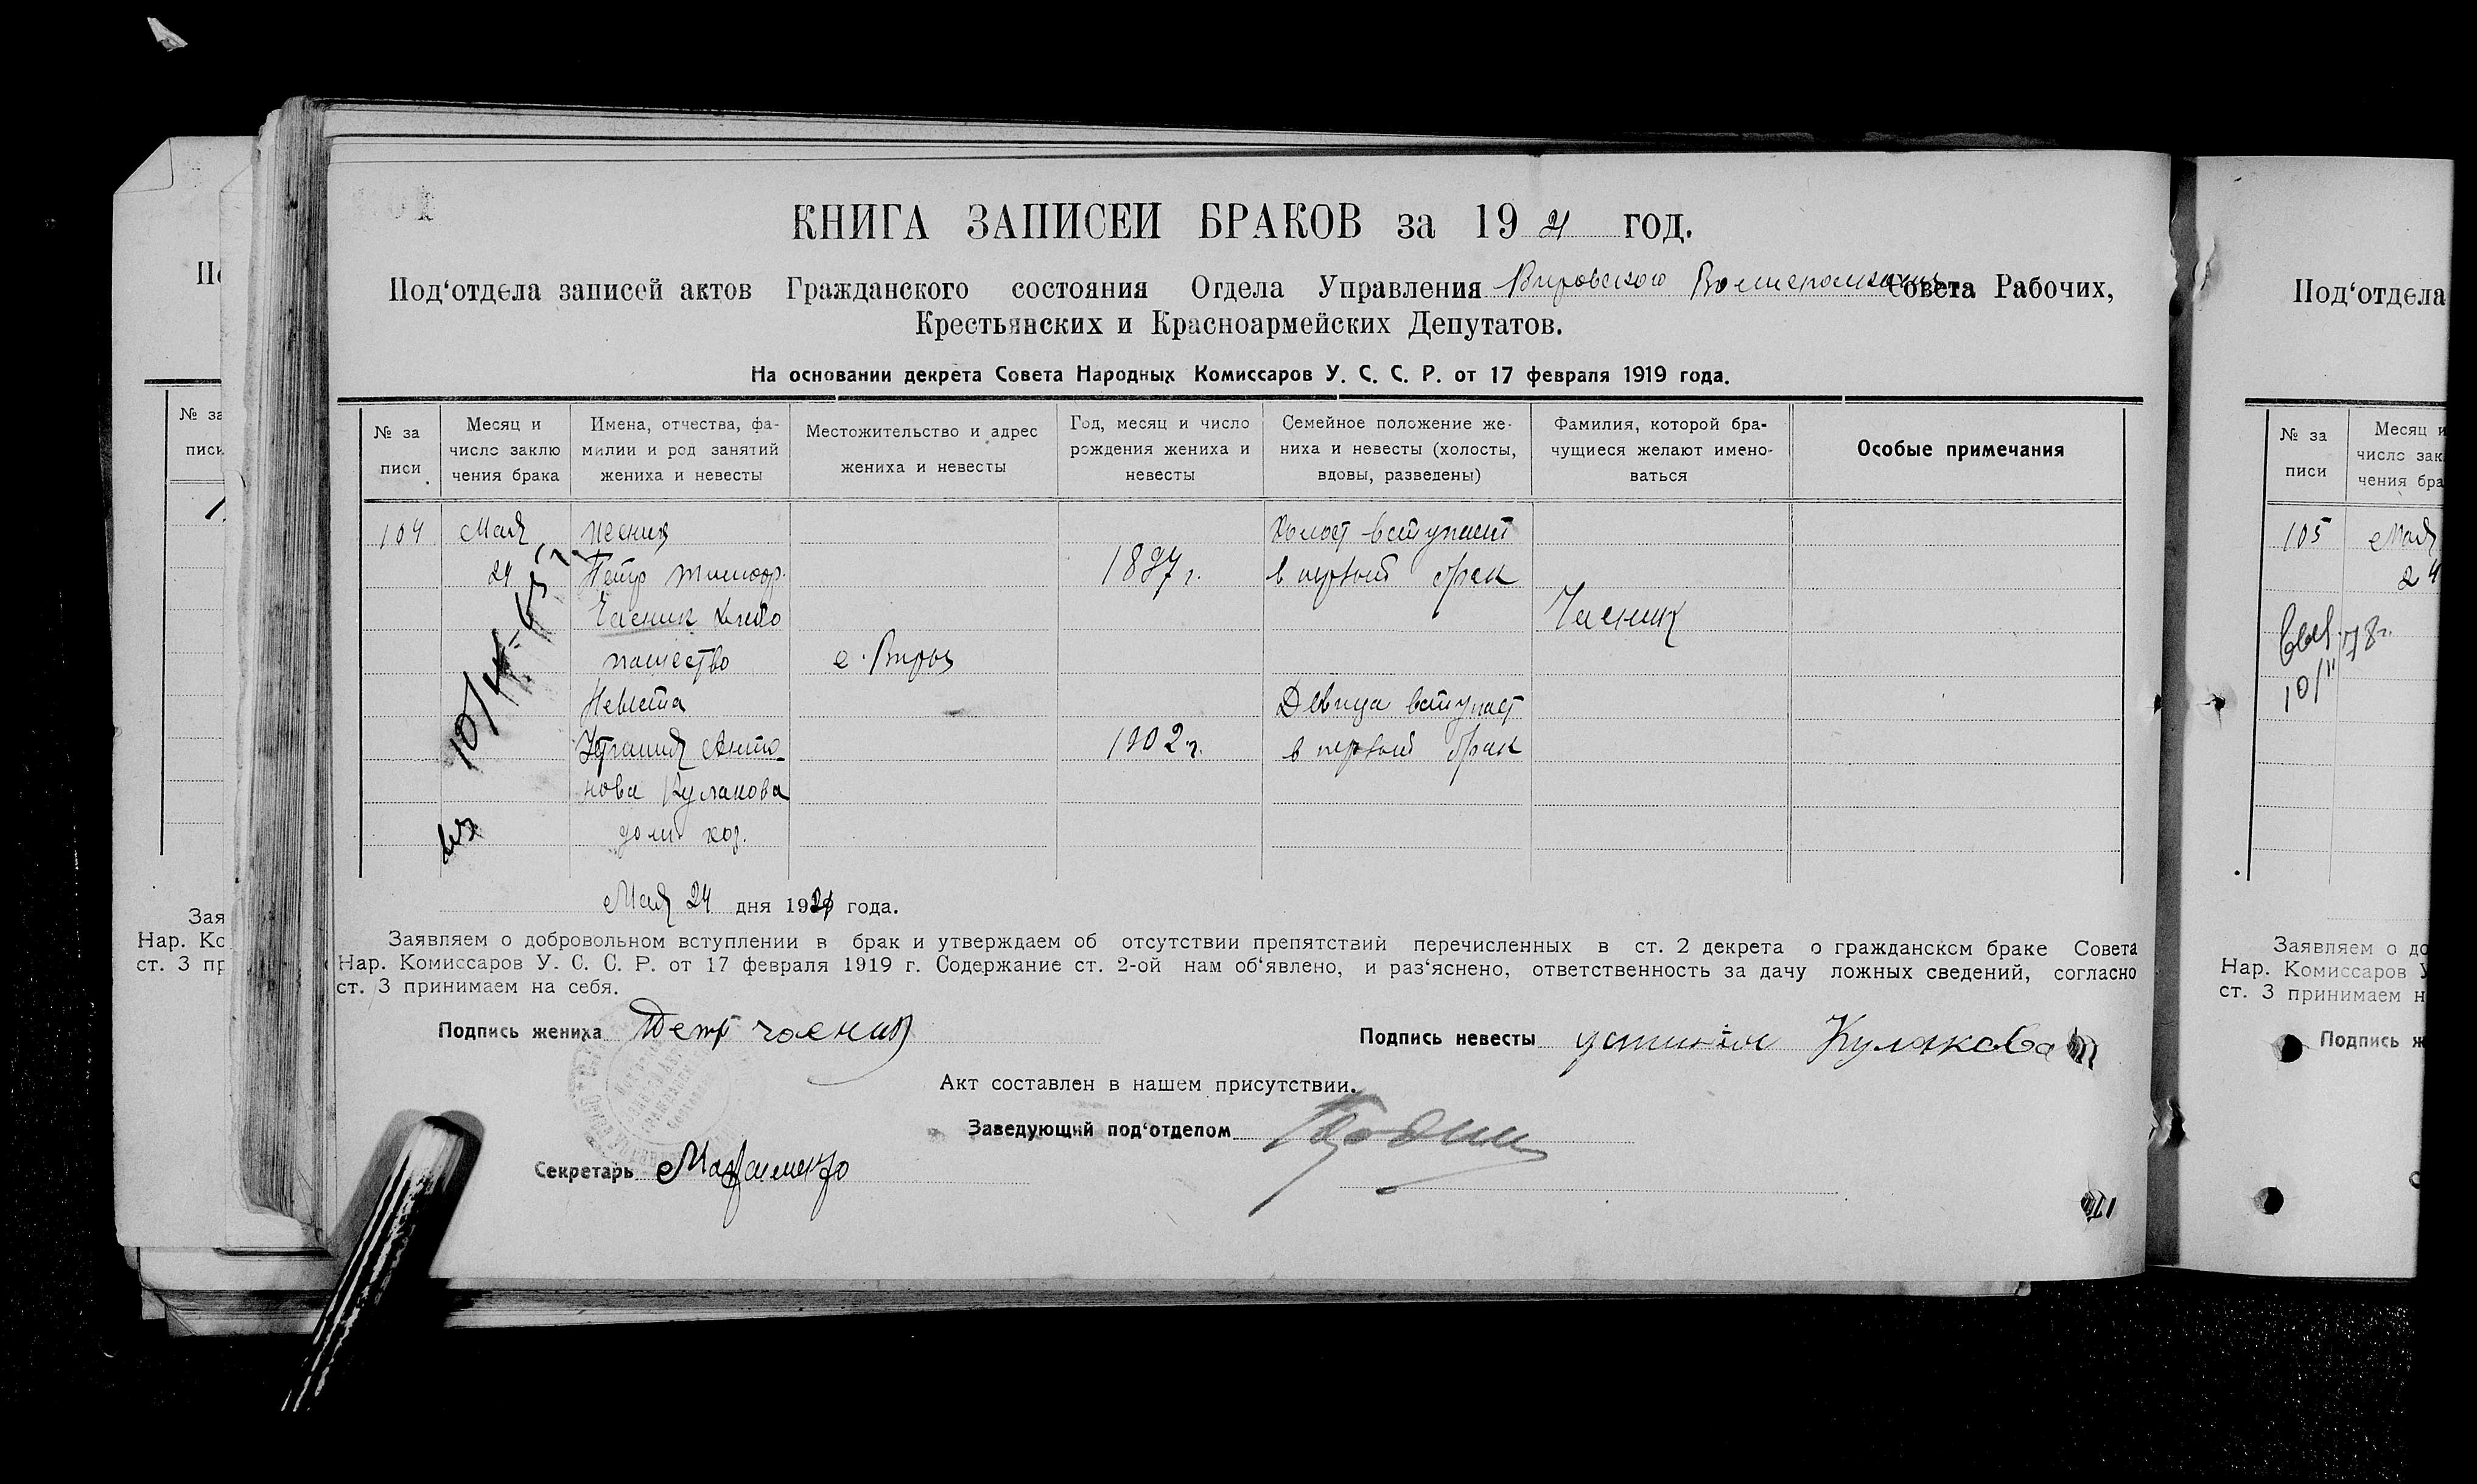 КНИГА ЗАПИСЕЙ БРАКОВ за 1921 год.
Под‘отдела записей актов Гражданского состояния Отдела Управления Вировского Волисполкома Совета Рабочих,
Крестьянских и Красноармейских Депутатов.
На основании декрета Совета Народных Комиссаров У. С. С. Р. от 17 февраля 1919 года.
№ за
писи
Месяц и
число заклю
чения брака
Имена, отчества, фа-
милии и род занятий
жениха и невесты
Местожительство и адрес
жениха и невесты
Год, месяц и число
рождения жениха и
невесты
Семейное положение же-
ниха и невесты (холосты,
вдовы, разведены)
Фамилия, которой бра-
чущиеся желают имено-
ваться
Особые примечания
104
Мая
24
Петр
Часник хлебо
пашество
Невеста
Анто-
нова Кулакова
дом. хоз.
с. Виры
1897 г.
1902 г.
Холост вступает
в первый брак
Девица вступает
в первый брак
Часник
Мая 24 дня 1921 года.
Заявляем о добровольном вступлении в брак и утверждаем об отсутствии препятствий перечисленных в ст. 2 декрета о гражданском браке Совета
Нар. Комиссаров У. С. С. Р. от 17 февраля 1919 г. Содержание ст. 2-ой нам об‘явлено, и раз‘яснено, ответственность за дачу ложных сведений, согласно
ст. 3 принимаем на себя.
Подпись жениха Петр Часник
Подпись невесты Кулакова
Акт составлен в нашем присутствии.
Заведующий под‘отделом
Секретарь
Под‘отдела
№ за
писи
Месяц и
число зак
чения бра
105
Мая
24
10/II 78г.
Заявляем о до
Нар. Комиссаров У
ст. 3 принимаем н
Подпись ж
№ за
писи
Зая
Нар. Ко
ст. 3 пр